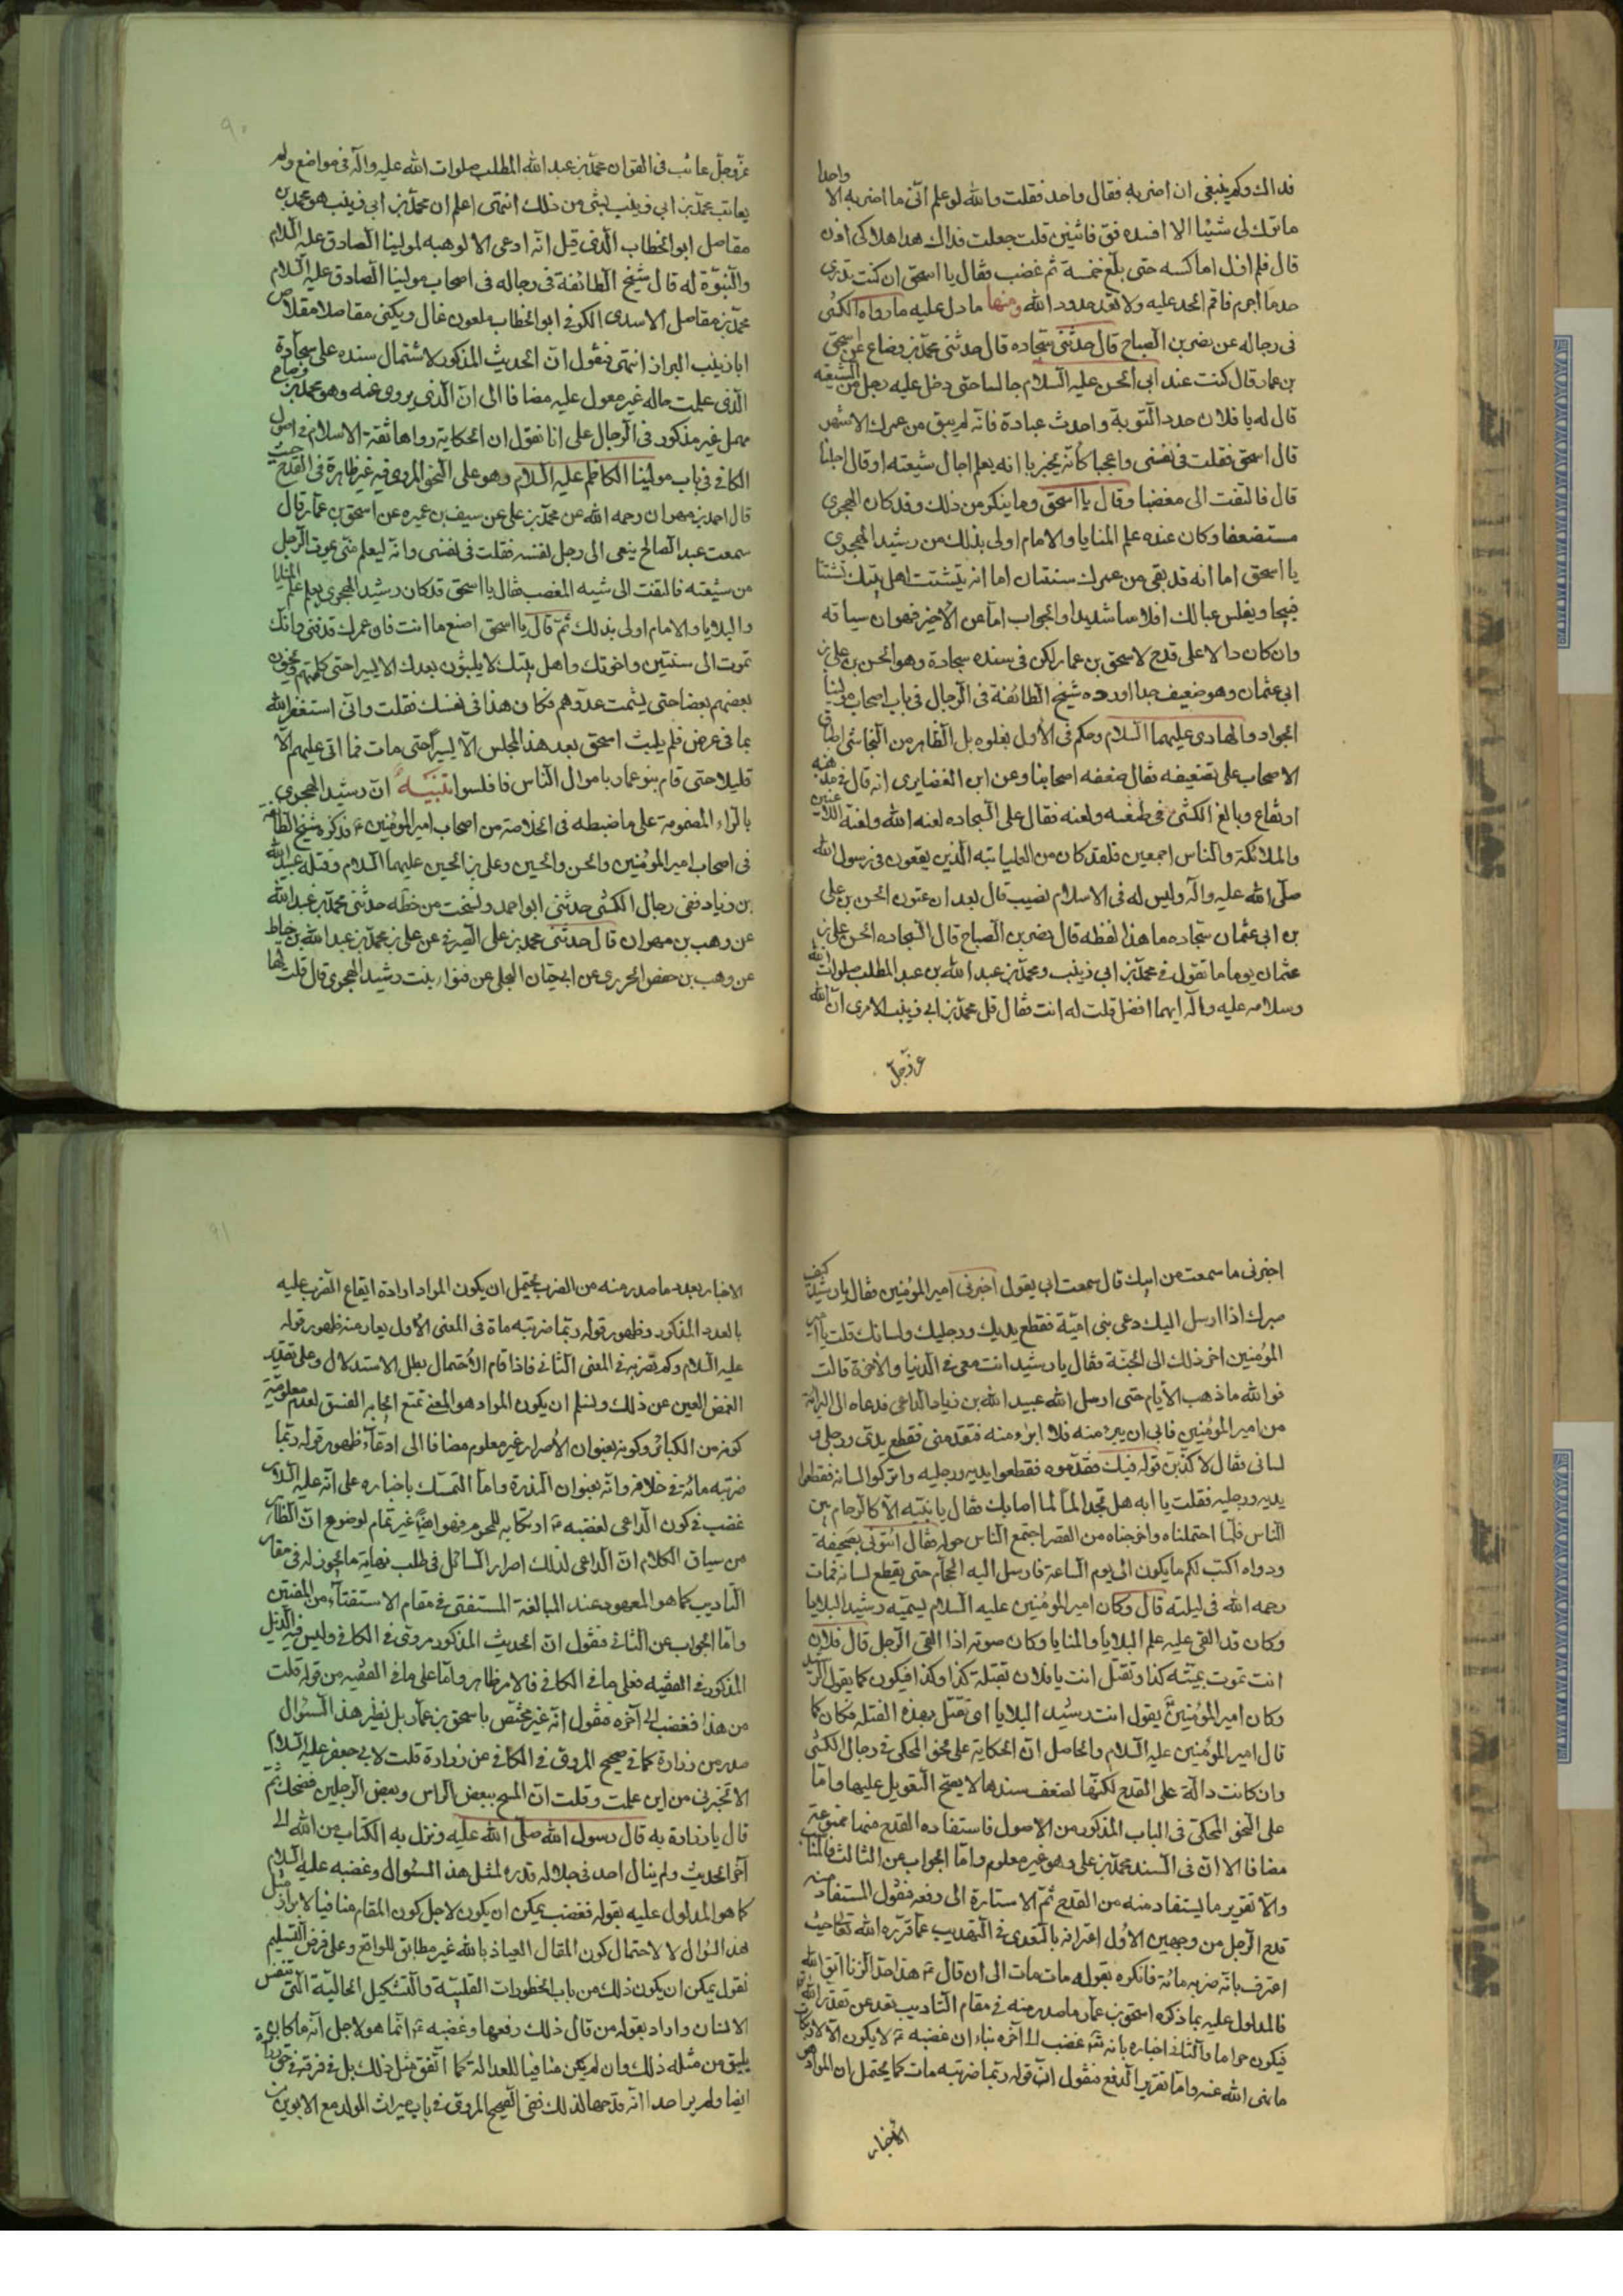 فداك وكم ينبغى ان اضربه فقال واحد فقلت والله لو علم انّى ما اضربه الا واحدا
ما ترك لى شيئا الا افسده فق فاثنين قلت جعلت فداك هذا هلاكى اذن
قال فلم ازل اماكسه حتى بلغ خمسة ثم غضب فقال يا اسحق ان كنت تدرى
حد ما اجرم فاقم الحد عليه ولا تعد حدود الله ومنها ما دل عليه ما رواه الكشى
فى رجاله عن نصر بن الصباح قال حدثنى سجاده قال حدثنى محمد بن وضاح عن اسحق
بن عمار قال كنت عند ابى الحسن عليه السلام جالسا حتى دخل عليه رجل من الشيعة
قال له يا فلان جدد التوبة واحدث عبادة فانه لم يبق من عمرك الا شهر
قال اسحق فقلت فى نفسى واعجبا كانه يخبرنا انه يعلم اجال شيعته او قال اجلنا
قال فالتفت الى مغضبا وقال يا اسحق وما ينكر من ذلك وقد كان الهجرى
مستضعفا وكان عنده علم المنايا والامام اولى بذلك من رشيد الهجرى
يا اسحق اما انه قد بقى من عمرك سنتان اما انه يتشتت اهل بيتك تشتتا
قبيحا ويفلس عيالك افلاسا شديدا والجواب اما عن الاخير فهو ان سياقه
وان كان دالا على قدح لاسحق بن عمار لكن فى سنده سجادة وهو الحسن بن على بن
ابى عثمان وهو ضعيف جدا اورده شيخ الطائفة فى الرجال فى باب اصحاب مولينا
الجواد والهادى عليهما السلام وحكم فى الاول بغلوه بل الظاهر من النجاشى اطباق
الاصحاب على تضعيفه فقال ضعفه اصحابنا وعن ابن الغضايرى انه قال فى مذهبه
ارتفاع وبالغ الكشى فى طعنه ولعنه فقال على السجاده لعنه الله ولعنة اللاعنين
والملائكة والناس اجمعين فلقد كان من العليائية الذين يقعون فى رسول الله
صلى الله عليه واله وليس له فى الاسلام نصيب قال بعد ان عنون الحسن بن على
بن ابى عثمان سجاده ما هذا لفظه قال نصر بن الصباح قال السجاده الحسن بن على بن
عثمان يوما ما تقول فى محمد بن ابى زينب ومحمد بن عبد الله بن عبد المطلب صلوات الله
وسلامه عليه واله ايهما افضل قلت له انت فقال قل محمد بن ابى زينب الا ترى ان الله
عز وجل
٩٠
عز وجل عاتب فى القران محمد بن عبد الله المطلب صلوات الله عليه واله فى مواضع ولم
يعاتب محمد بن ابى زينب بشى من ذلك انتهى اعلم ان محمد بن ابى زينب هو محمد بن
مقاصل ابو الخطاب الذى قيل انه ادعى الالوهية لمولينا الصادق عليه السلام
والنبوة له قال شيخ الطائفة فى رجاله فى اصحاب مولينا الصادق عليه السلام
محمد بن مقاصل الاسدى الكوفى ابو الخطاب ملعون غال ويكنى مقاصلا مقلاص
ابا زينب البزاز انتهى فنقول ان الحديث المذكور لاشتمال سنده على سجادة
الذى علمت حاله غير معول عليه مضافا الى ان الذى يروى عنه وهو محمد بن وضاح
مهمل غير مذكور فى الرجال على انا نقول ان الحكاية رواها ثقة الاسلام فى اصول
الكافى فى باب مولينا الكاظم عليه السلام وهو على النحو المروى فيه غير ظاهرة فى القدح حيث
قال احمد بن مهران رحمه الله عن محمد بن على عن سيف بن عميره عن اسحق بن عمار قال
سمعت عبد الصالح ينعى الى رجل نفسه فقلت فى نفسى وانه ليعلم متى يموت الرجل
من شيعته فالتفت الى شبه المغضب فقال يا اسحق قد كان رشيد الهجرى يعلم علم المنايا
والبلايا والامام اولى بذلك ثم قال يا اسحق اصنع ما انت فان عمرك قد فنى وانك
تموت الى سنتين واخوتك واهل بيتك لا يلبثون بعدك الا يسيرا حتى
بعضهم بعضا حتى يشمت عدوهم فكان هذا فى نفسك فقلت وانى استغفر الله
بما فى عرض فلم يلبث اسحق بعد هذا المجلس الا يسيرا حتى مات فما اتى عليهم الا
قليلا حتى قام بنو عمار باموال الناس فافلسوا تنبيه ان رشيد الهجرى
بالراء المضمومة على ما ضبطه فى الخلاصة من اصحاب امير المؤمنين ع ذكره شيخ الطائفة
فى اصحاب امير المؤمنين والحسن والحسين وعلى بن الحسين عليهما السلام وقتله عبيد الله
بن زياد ففى رجال الكشى حدثنى ابو احمد ونسخت من خطه حدثنى محمد بن عبد الله
عن وهب بن مهران قال حدثنى محمد بن على الصيرفى عن على بن محمد بن عبد الله بن خياط
عن وهب بن حفص الحريرى عن ابى حيان البجلى عن قنوا بنت رشيد الهجرى قال قلت لها
اخبرنى ما سمعت من ابيك قال سمعت ابى يقول اخبرنى امير المؤمنين فقال يا رشيد كيف
صبرك اذا ارسل اليك دعى بنى امية فقطع يديك ورجليك ولسانك قلت يا امير
المؤمنين اخر ذلك الى الجنة فقال يا رشيد انت معى فى الدنيا والاخرة قالت
فوالله ما ذهب الايام حتى ارسل الله عبيد الله بن زياد الداعى فدعاه الى البرائة
من امير المؤمنين فابى ان يبرء منه
لسانى فقال لاكذبن قوله فيك فقدموه فقطعوا يديه ورجليه واتركوا لسانه فقطعوا
يديه ورجليه فقلت يا ابه هل تجد الما لما اصابك فقال يا بنيه الا كالزحام بين
الناس فلما احتملناه واخرجناه من القصر اجتمع الناس حوله فقال ائتونى بصحيفة
ودواه اكتب لكم ما يكون الى يوم الساعة فارسل اليه الحجام حتى يقطع لسانه فمات
رحمه الله فى ليلته قال وكان امير المؤمنين عليه السلام يسميه رشيد البلايا
وكان قد القى عليه علم البلايا والمنايا وكان اذا القى الرجل قال فلان
انت تموت بميتة كذا وتقتل انت يا فلان بقتلة كذا وكذا فيكون كما يقول
وكان امير المؤمنين ع يقول انت رشيد البلايا اى تقتل بهذه القتلة فكان كما
قال امير المؤمنين عليه السلام والحاصل ان الحكاية على نحو المحكى فى رجال الكشى
وان كانت دالة على القدح لكنها لضعف سندها لا يصح التعويل عليها واما
على النحو المحكى فى الباب المذكور من الاصول فاستفاده القدح منها ممنوعة
مضافا الا ان فى السند محمد بن على وهو غير معلوم واما الجواب عن الثالث
والا تقرير ما يستفاد منه من القدح ثم الاشارة الى دفعه فنقول المستفاد منه
قدح الرجل من وجهين الاول اعترافه بالتعدى فى التهديب عما قرره الله تعالى حيث
اعترف بانه ضربه مائة فانكره بقوله مات مات الى ان قال ع هذا حد الزنا اتق الله
فالمدلول عليه بما ذكره اسحق بن عمار ما صدر منه فى مقام التاديب
فيكون حراما والثانى اخباره بانه ع غضب الى اخره بناء ان غضبه ع لا يكون الا
ما نهى الله عنه واما تقرير الدفع فنقول ان قوله ربما ضربته مات كما يحتمل ان المراد
الاخبار
٩١
الاخبار بعدد ما صدر منه من الضرب يحتمل ان يكون المراد ارادة ايقاع الضرب عليه
بالعدد المذكور وظهور قوله ربما ضربته ماة فى المعنى الاول يعارضه ظهور قوله
عليه السلام وكم تضربه فى المعنى الثانى فاذا قام الاحتمال بطل الاستدلال وعلى تقدير
الغض العين عن ذلك ونسلم ان يكون المراد هو المعنى نمنع الفسق لعدم معلومية
كونه من الكبائر وكونه بعنوان الاصرار غير معلوم مضافا الى ادعاء ظهور قوله ربما
ضربته مائة فى خلافه وانه بعنوان الندرة واما التمسك باخباره على انه عليه السلام
غضب فى كون الداعى لغضبه ع ارتكابه للمحرم فهو ايضا غير تمام لوضوح ان الظاهر
من سياق الكلام ان الداعى لذلك اصرار السائل فى طلب نهاية ما يجوز له فى مقام
التاديب كما هو المعهود عند المبالغة المستفتى فى مقام الاستفتاء من المفتين
واما الجواب عن الثانى فنقول ان الحديث المذكور مروى فى الكافى وليس فيه الذيل
المذكور فى الفقيه فعلى ما فى الكافى فالامر ظاهر واما على ما فى الفقيه من قوله قلت
من هذا فغضب الى آخره فنقول انه غير مختص باسحق بن عمار بل نظير هذا السؤال
صدر من زرارة كما فى صحيح المروى فى الكافى عن زرارة قلت لابى جعفر عليه السلام
الا تخبرنى من اين علمت وقلت ان المسح ببعض الراس وبعض الرجلين فضحك ثم
قال يا زرارة به قال رسول الله صلى الله عليه ونزل به الكتاب من الله الى
آخر الحديث ولم ينال احد فى جلالة قدره لمثل هذا السؤال وغضبه عليه السلام
كما هو المدلول عليه بقوله فغضب يمكن ان يكون لاجل كون المقام منافيا لابراز مثل
هذا السؤال لا لاحتمال كون المقال العياذ بالله غير مطابق للواقع وعلى فرض التسليم
نقول يمكن ان يكون ذلك من باب الخطورات القلبية والتشكيل الحالية التى
الانسان واراد بقوله من قال ذلك رفعها وغضبه ع انما هو لاجل انه ما كان
يليق من مثله ذلك وان لم يكن منافيا للعدالة كما اتفق مثل ذلك بل
ايضا ولم ير احدا انه قدحها لذلك ففى الصحيح المروى فى باب ميراث الولد مع الابوين